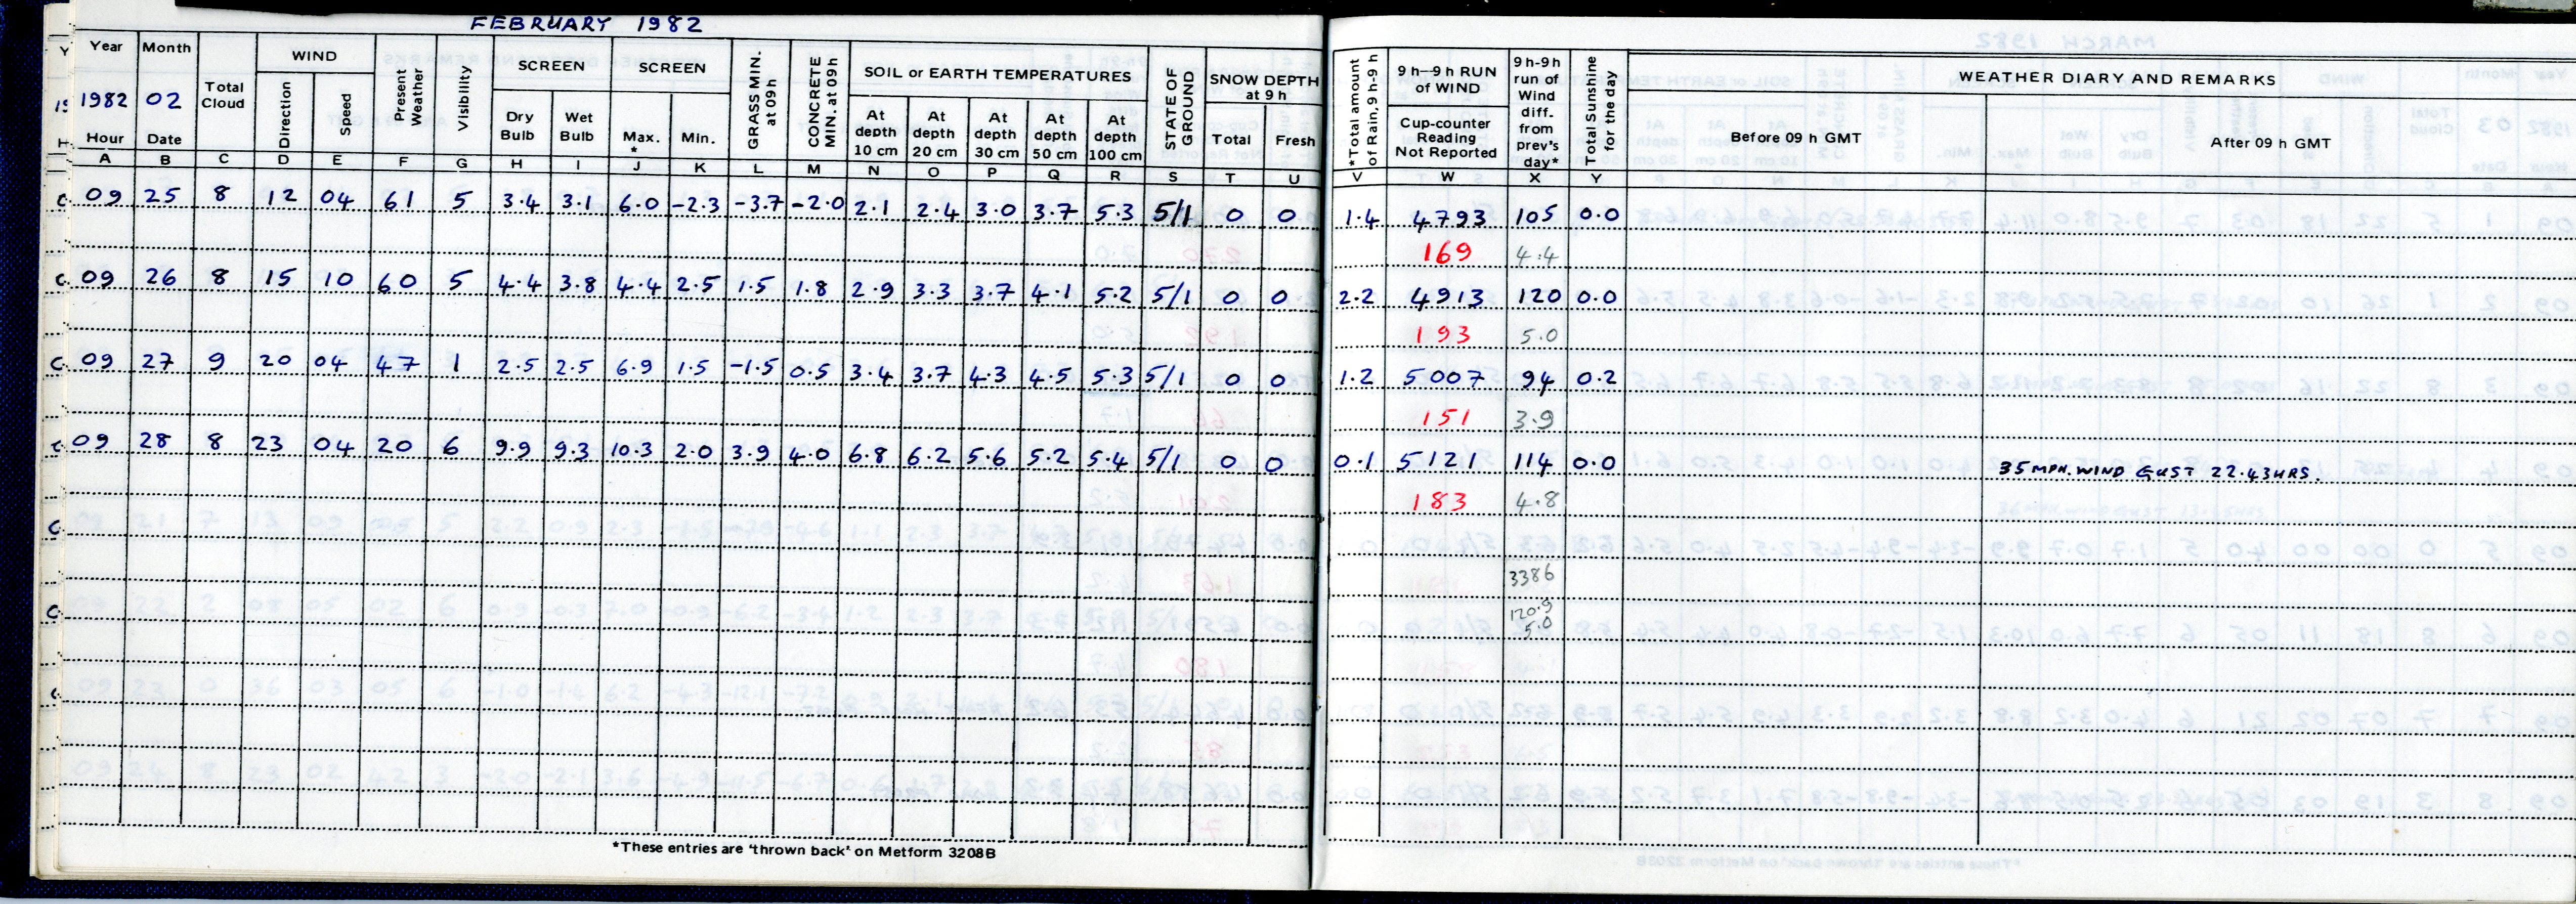 FEBRUARY 1982
Year Month Total Cloud WIND Present Weather Visibility SCREEN SCREEN GRASS MIN. at 09h CONCRETE MIN. at 09h SOIL or EARTH TEMPERATURES STATE OF GROUND SNOW DEPTH at 9 h *Total amount of Rain, 9 h-9 h 9 h—9 h RUN of WIND 9 h-9h run of Wind diff. from prev's day* Total Sunshine for the day WEATHER DIARY AND REMARKS
1982 02 Direction Speed Dry Bulb Wet Bulb Max. * Min. At depth 10 cm At depth 20 cm At depth 30 cm At depth 50 cm At depth 100 cm Total Fresh Cup-counter Reading Not Reported Before 09 h GMT After 09 h GMT
Hour Date
A B C D E F G H I J K L M N O P Q R S T U V W X Y
09 25 8 12 04 61 5 3.4 3.1 6.0 -2.3 -3.7 -2.0 2.1 2.4 3.0 3.7 5.3 5/1 0 0 1.4 4793 105 0.0
169 4.4
09 26 8 15 10 60 5 4.4 3.8 4.4 2.5 1.5 1.8 2.9 3.3 3.7 4.1 5.2 5/1 0 0 2.2 4913 120 0.0
193 5.0
09 27 9 20 04 47 1 2.5 2.5 6.9 1.5 -1.5 0.5 3.4 3.7 4.3 4.5 5.3 5/1 0 0 1.2 5007 94 0.2
151 3.9
09 28 8 23 04 20 6 9.9 9.3 10.3 2.0 3.9 4.0 6.8 6.2 5.6 5.2 5.4 5/1 0 0 0.1 5121 114 0.0 35 MPH. WIND GUST 22.43HRS.
183 4.8
3386
120.9
5.0
*These entries are 'thrown back' on Metform 3208B